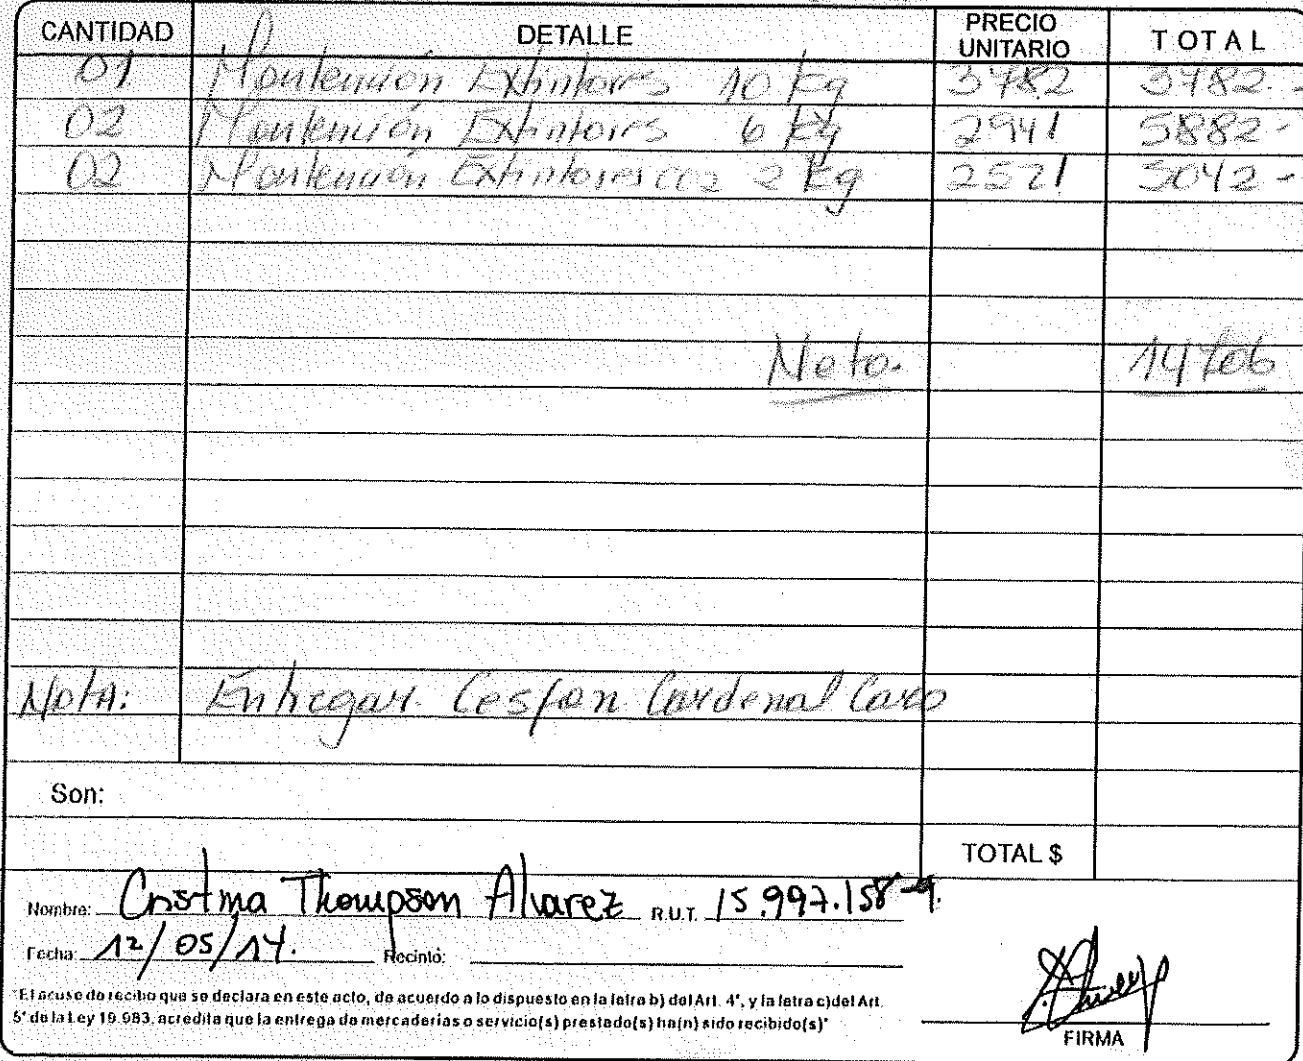 CANTIDAD DETALLE PRECIO UNITARIO TOTAL
01 Mantención Extintores 10 kg 3782 3782.-
02 Mantención Extintores 6 kg 2941 5882-
02 Mantención Extintores CO2 2 kg 2521 5042-
Neto. 14706
Nota: Entregar Cesfan Cardenal Caro
Son:
TOTAL $
Nombre: Cristina Thompson Alvarez R.U.T. 15.997.158-9.
Fecha: 12/05/14. Recinto:
"El acuse de recibo que se declara en este acto, de acuerdo a lo dispuesto en la letra b) del Art. 4°, y la letra c)del Art.
5° de la Ley 19.983, acredita que la entrega de mercaderias o servicio(s) prestado(s) ha(n) sido recibido(s)"
FIRMA